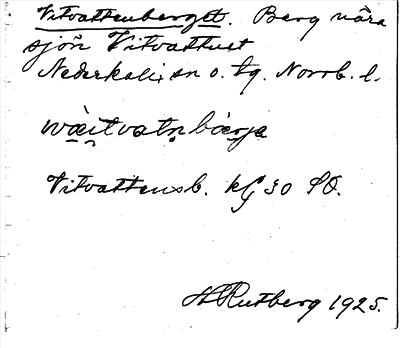 Vitvattenberget. Berg nära
sjön Vitvattnet
Nederkalix sn o. tg. Norrb. l.
wä̀itvatn̥bærje
Vitvattensb. kG 30 SO.
H Rutberg 1925.